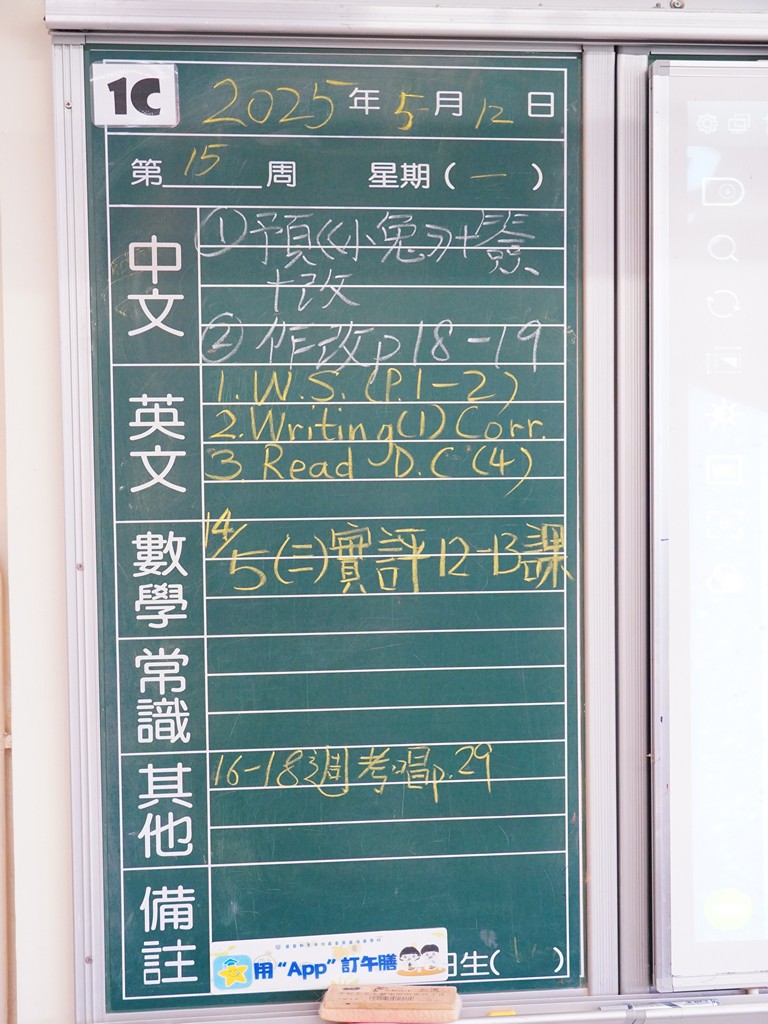 1C 2025年5月12日
第15周 星期(一)
中文
①預《小兔》+簽、
+改
②作改p18-19
英文
1.W.S.(P.1-2)
2.Writing(1) Corr.
3.Read D.C(4)
數學
14/5(三)實評12-13課
常識
其他
16-18週考唱p.29
備註
用“App”訂午膳
日生( )